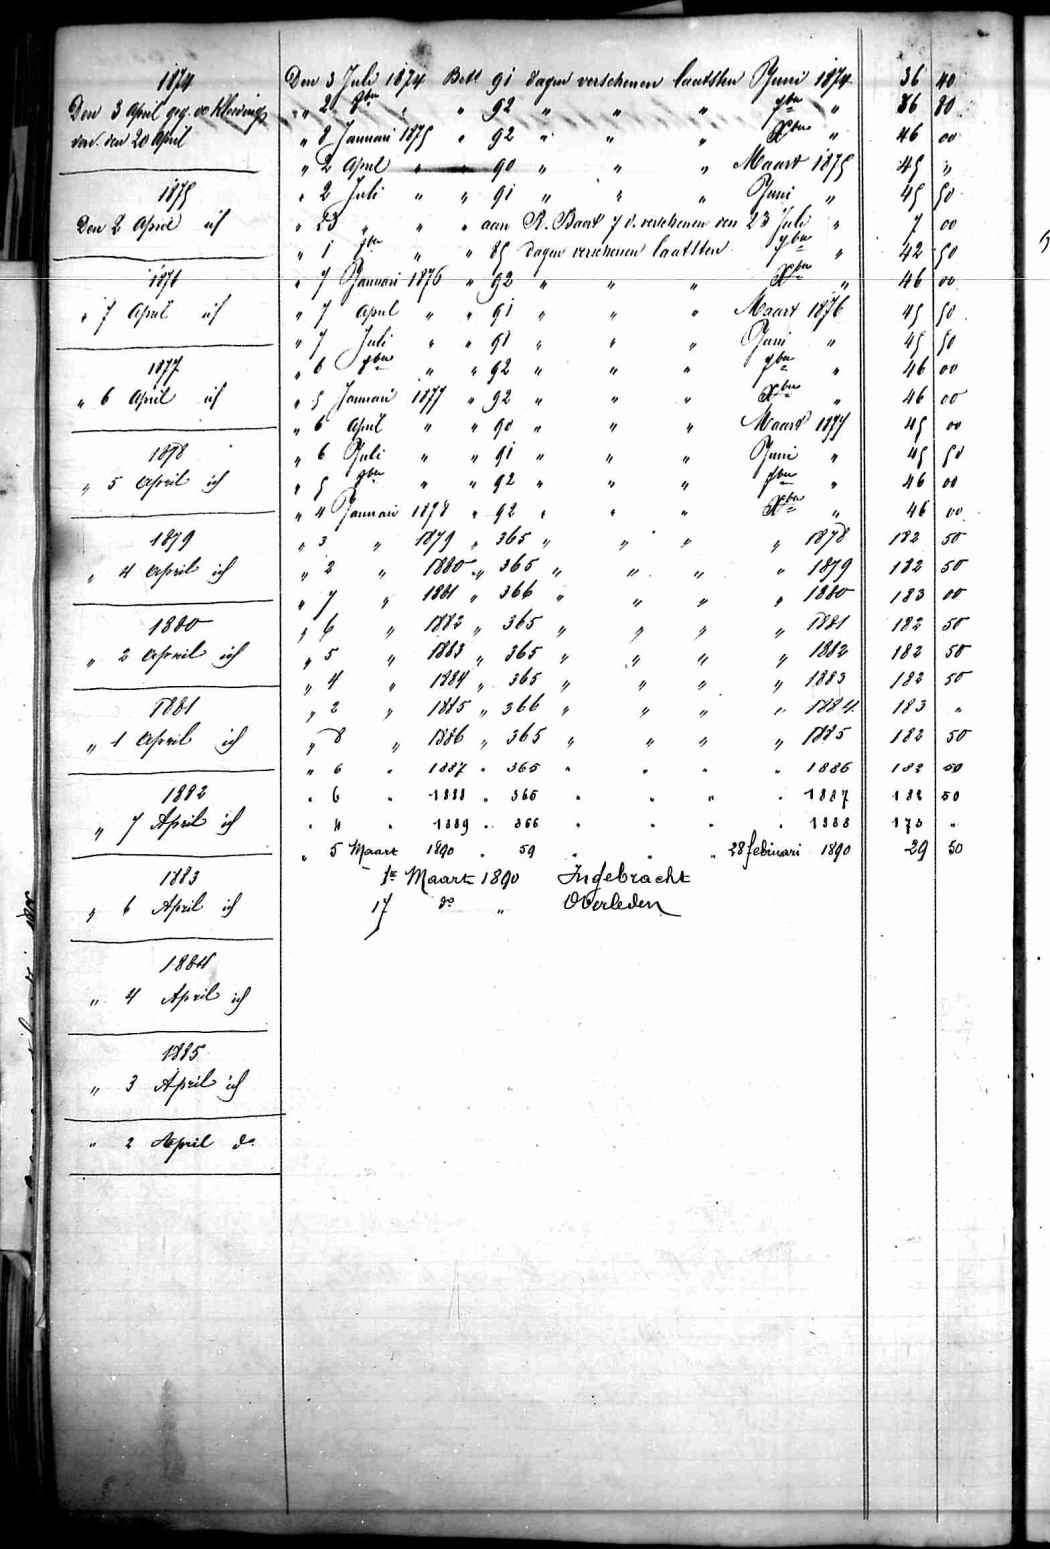 1874
Den 3 April geg. de kleeding
verv. den 20 April
1875
Den 2 April id
1876
" 7 April id
1877
" 6 April id
1878
" 5 April id
1879
" 4 April id
1880
" 2 April id
1881
" 1 April id
1882
" 7 April id
1883
" 6 April id
1884
" 4 April id
1885
" 3 April id
" 2 April do
Den 3 Juli 1874 Bett 91 dagen verschenen laatsten Juni 1874 36 40
" 2 " " 92 " " " 7ber " 36 80
" 8 Januari 1875 " 92 " " " Xber " 46 00
" 2 April " " 90 " " " Maart 1875 45 "
" 2 Juli " " 91 " " " Juni " 45 50
" 23 " " " aan R. Baat 7 d. verschenen den 23 Juli " 7 00
" 1 " " 85 dagen verschenen laatsten 7ber " 42 50
" 7 Januari 1876 " 92 " " " Xber " 46 00
" 7 April " " 91 " " " Maart 1876 45 50
" 7 Juli " " 91 " " " Juni " 45 50
" 6 " " 92 " " " 7ber " 46 00
" 5 Januari 1877 " 92 " " " Xber " 46 00
" 6 April " " 90 " " " Maart 1877 45 00
" 6 Juli " " 91 " " " Juni " 45 50
" 5 " " 92 " " " 7ber " 46 00
" 4 Januari 1878 " 92 " " " Xber " 46 00
" 3 " 1879 " 365 " " " " 1878 182 50
" 2 " 1880 " 365 " " " " 1879 182 50
" 7 " 1881 " 366 " " " " 1880 183 00
" 6 " 1882 " 365 " " " " 1881 182 50
" 5 " 1883 " 365 " " " " 1882 182 50
" 4 " 1884 " 365 " " " " 1883 182 50
" 2 " 1885 " 366 " " " " 1884 183 "
" 8 " 1886 " 365 " " " " 1885 182 50
" 6 " 1887 " 365 " " " " 1886 182 50
" 6 " 1888 " 365 " " " " 1887 182 50
" 4 " 1889 " 366 " " " " 1888 173 "
" 5 Maart 1890 " 59 " " " 28 februari 1890 29 50
1e Maart 1890 Ingebracht
17 do " Overleden